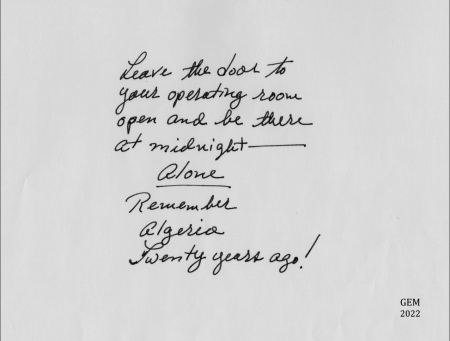 Leave the door to
your operating room
open and be there
at midnight—
Alone
Remember
Algeria
Twenty years ago!
GEM
2022